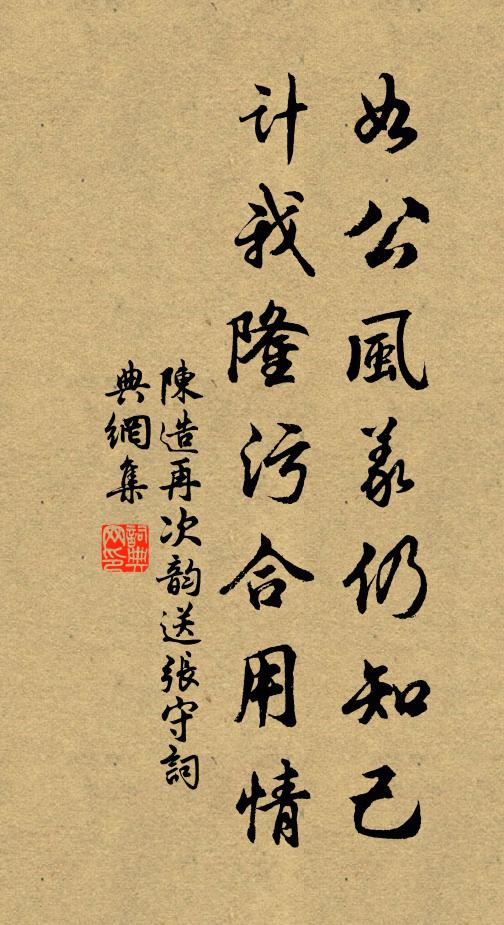 如公風義仍知己
計我隆污合用情
陳造再次韵送張守詞
典網集
詞典網印